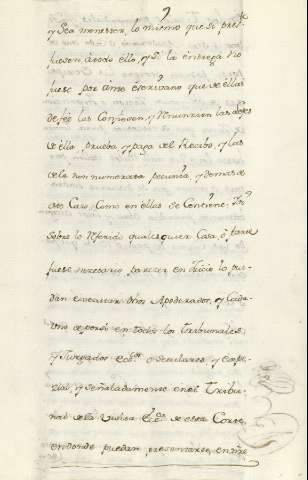 y Sea menester, lo mismo que si pres
fuesen á todo ello, y si la entrega no
fuese por ante Escrivano que de ellas
de feé las Confiesen, y renuncien las Leyes
de ella, prueba y paga del Recibo, y las
de la non numerata pecunia, y demas de
este Caso, como en ellas se Contiene
Sobre lo referido qualesquier Cosa, ó parte
fuese necesario parecer en Juicio lo pue
dan executar dhos Apoderados, y Cada
uno de por si en todos los Tribunales,
y Juzgados ecco. o seculares y espe
cial, y señaladamente en el Tribu
nal de la Visita Ecca. de esta Corte,
en donde puedan presentarse, en mi